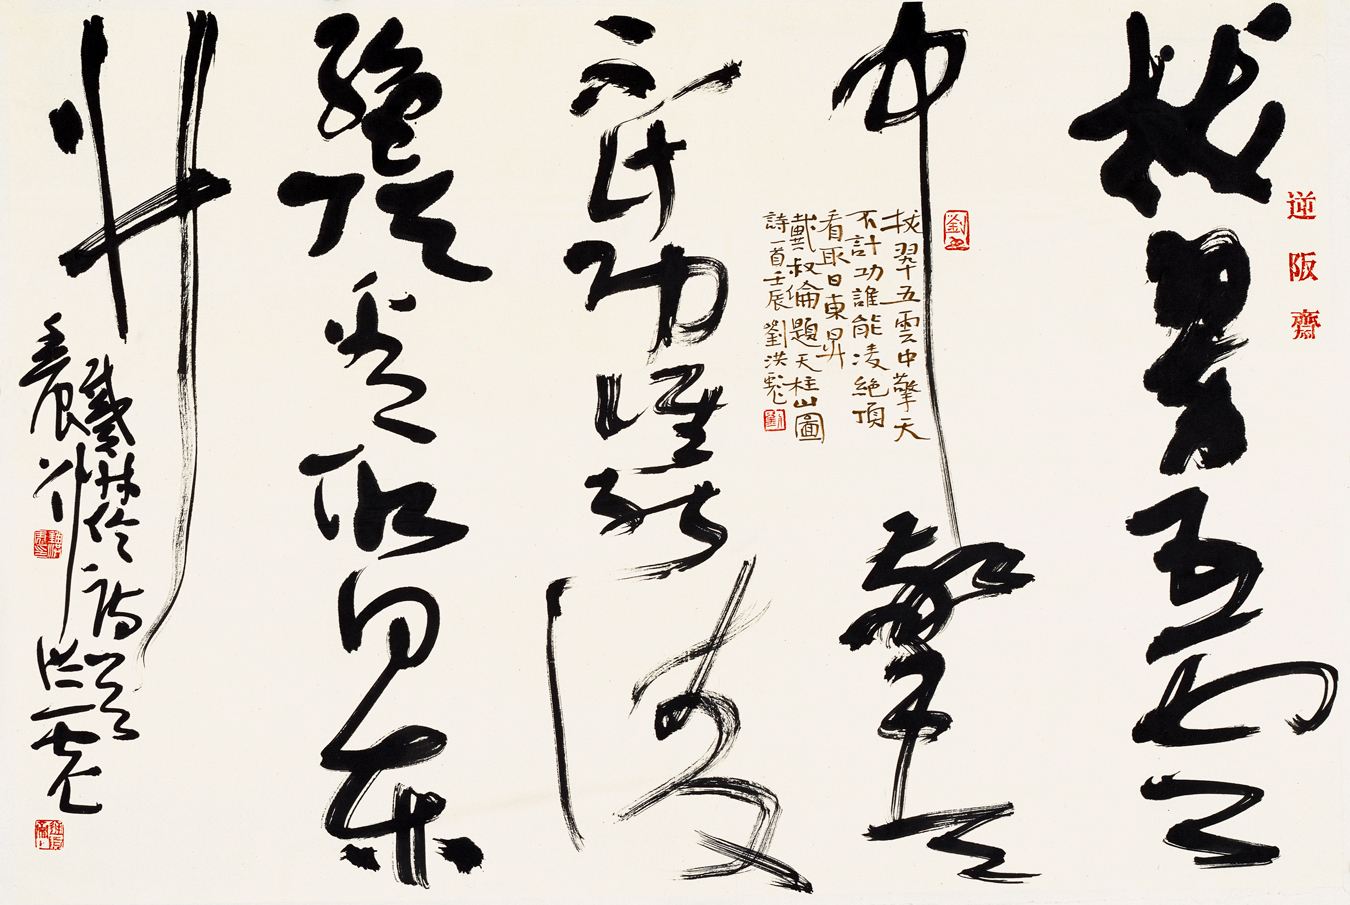 逆阪齋
拔翠五雲
中擎天
拔翠五雲中擎天
不計功誰能凌絕頂
看取日東昇
戴叔倫題天柱山圖
詩一首壬辰劉洪彪
不計功誰能凌
絕頂看取日東
昇
戴叔倫詩一首
壬辰劉洪彪